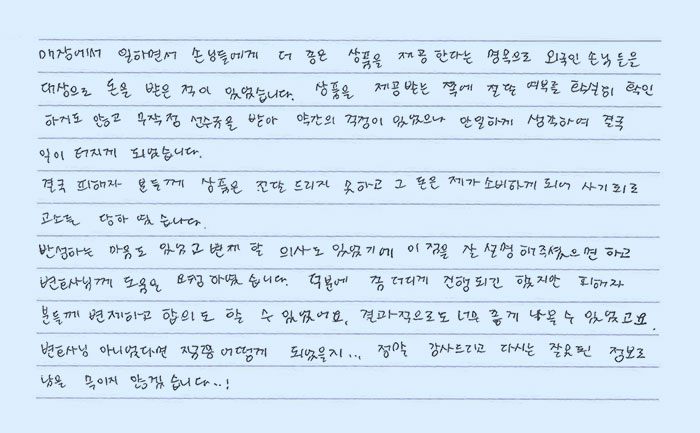 매장에서 일하면서 손님들에게 더 좋은 상품을 제공 한다는 명목으로 외국인 손님 들을
대상으로 돈을 받은 적이 있었습니다. 상품을 제공받는 쪽에 전달 여부를 확실히 확인
하지도 않고 무작정 선수금을 받아 약간의 걱정이 있었으나 안일하게 생각하여 결국
일이 터지게 되었습니다.
결국 피해자 분들께 상품은 전달 드리지 못하고 그 돈은 제가 소비하게 되어 사기죄로
고소를 당하 였 습니다.
반성하는 마음도 있었고 변제 할 의사도 있었기에 이 점을 잘 설명 해주셨으면 하고
변호사님께 도움을 요청 하였 습니다. 덕분에 좀 더디게 진행되긴 했지만 피해자
분들께 변제하고 합의도 할 수 있었어요, 결과적으로도 너무 좋게 나올 수 있었고요.
변호사님 아니었다면 지금쯤 어떻게 되었을지... 정말 감사드리고 다시는 잘못된 정보로
남을 속이지 않겠습니다..!